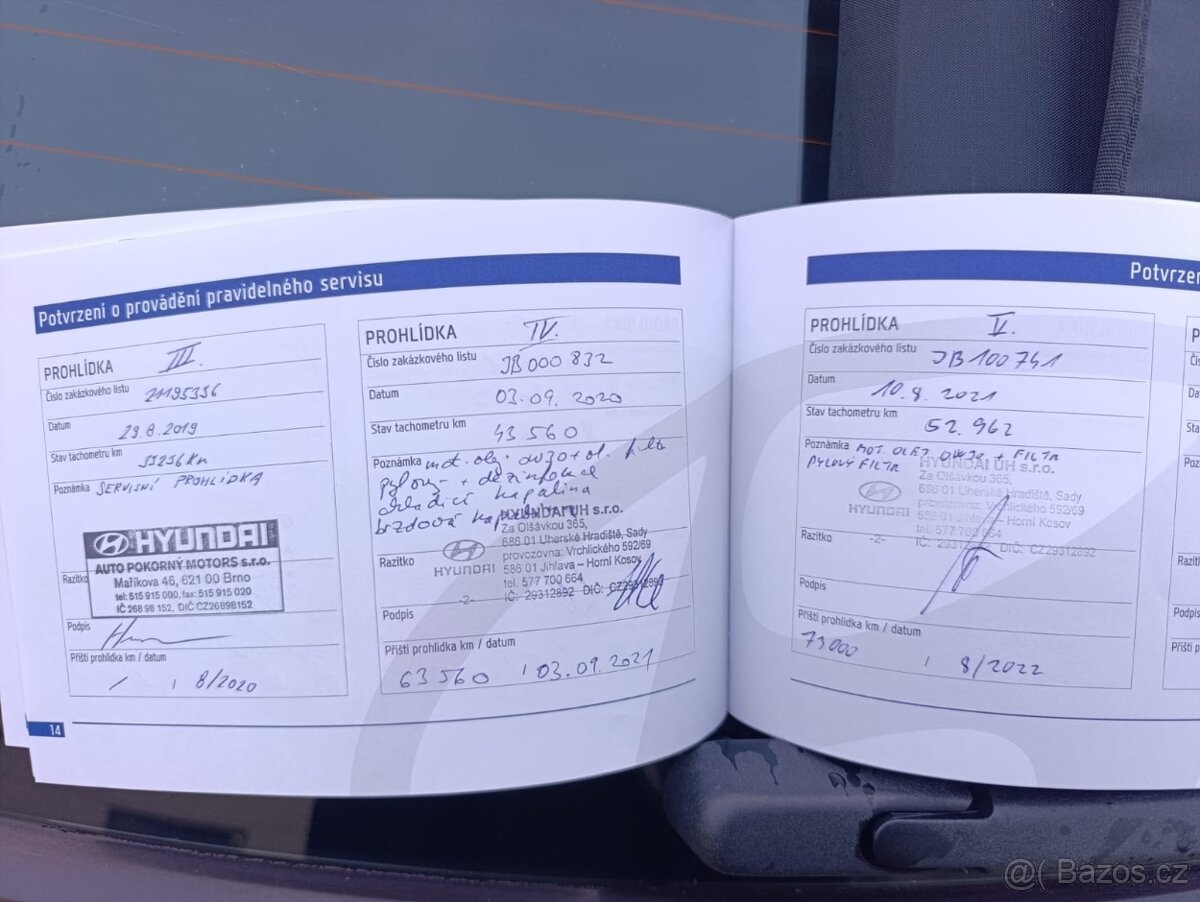 Potvrzení o provádění pravidelného servisu
PROHLÍDKA III.
Číslo zakázkového listu 21195356
Datum 29.8.2019
Stav tachometru km 33236 Km
Poznámka SERVISNÍ PROHLÍDKA
HYUNDAI
AUTO POKORNÝ MOTORS s.r.o.
Razítko Maříkova 46, 621 00 Brno
tel: 515 915 000, fax: 515 915 020
IČ 268 98 152, DIČ CZ26898152
Podpis
Příští prohlídka km / datum
/ , 8/2020
14
PROHLÍDKA IV.
Číslo zakázkového listu JB000832
Datum 03.09.2020
Stav tachometru km 43 560
Poznámka mot. olej 0W30 + ol. filtr
pylový + dezinfekce
chladící kapalina
brzdová kapalina
HYUNDAI UH s.r.o.
Za Olšávkou 365,
686 01 Uherské Hradiště, Sady
provozovna: Vrchlického 592/69
586 01 Jihlava – Horní Kosov
tel. 577 700 664
IČ: 29312892 DIČ: CZ29312892
Razítko HYUNDAI
-2-
Podpis
Příští prohlídka km / datum
63 560 / 03.09.2021
Potvrzen
PROHLÍDKA V.
Číslo zakázkového listu JB100741
Datum 10.8.2021
Stav tachometru km 52.962
Poznámka MOT. OLEJ 0W30 + FILTR
PYLOVÝ FILTR
HYUNDAI UH s.r.o.
Za Olšávkou 365,
686 01 Uherské Hradiště, Sady
provozovna: Vrchlického 592/69
586 01 Jihlava – Horní Kosov
tel. 577 700 664
IČ: 29312892 DIČ: CZ29312892
HYUNDAI
Razítko -2-
Podpis
Příští prohlídka km / datum
73000 / 8/2022
@( Bazos.cz